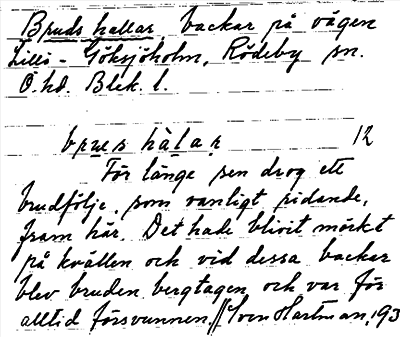 Bruds hallar, backar på vägen
Lilla - Göksjöholm, Rödeby sn.
Ö. hd. Blek. l.
brʉs hàlar 12
För länge sen drog ett
brudfölje, som vanligt ridande,
fram här. Det hade blivit mörkt
på kvällen och vid dessa backar
blev bruden bergtagen och var för
alltid försvunnen. // Sven Hartman, 193